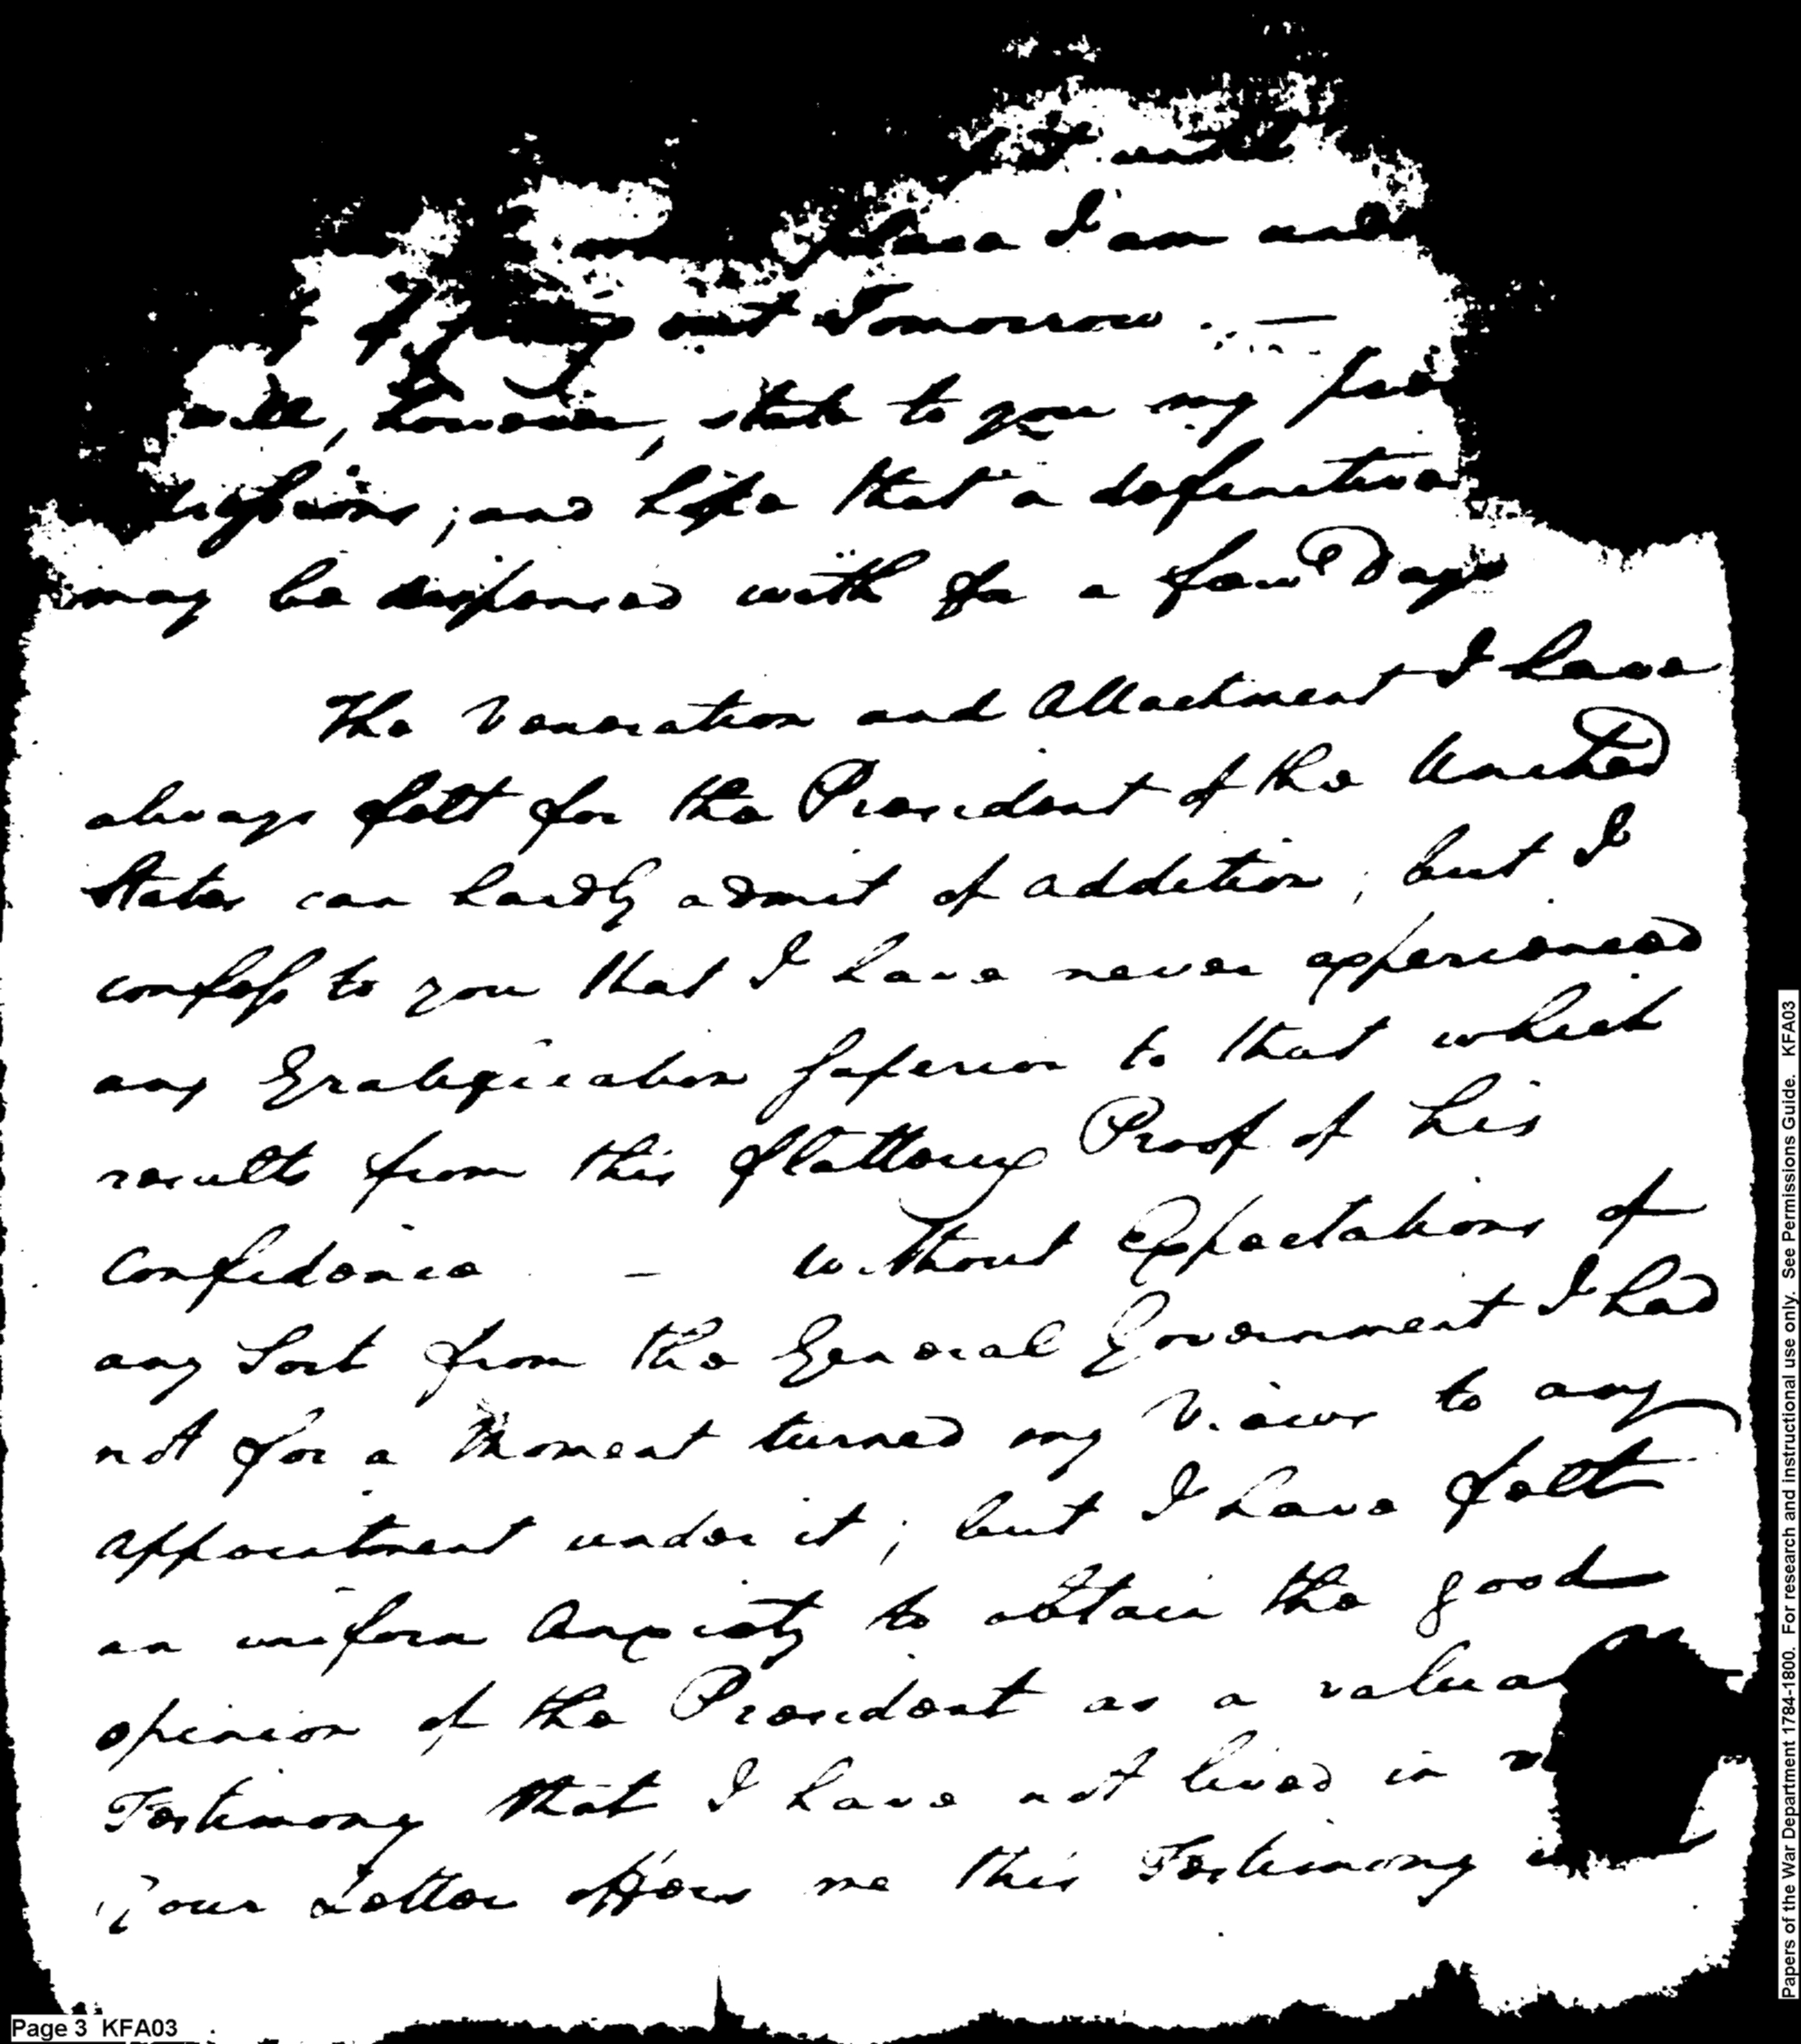 I am
out Tomorrow . —
however, state to you my
; and hope that a definitive
may be dispensed with for a few Days
The Veneration and Attachment I have
always felt for the President of the United
States can hardly admit of addition, but I
confess to you that I have never experienced
any Gratification superior to that which
results from this flattering Proof of his
Confidence – Without Expectations of
any Sort from the General Government I had
not for a Moment turned my Views to any
appointment under it; but I have felt
an uniform Anxiety to obtain the good
opinion of the President as a
Testimony that I have not lived in
Your Letter affords me this Testimony
Page 3 KFA03
Papers of the War Department 1784-1800. For research and instructional use only. See Permissions Guide. KFA03